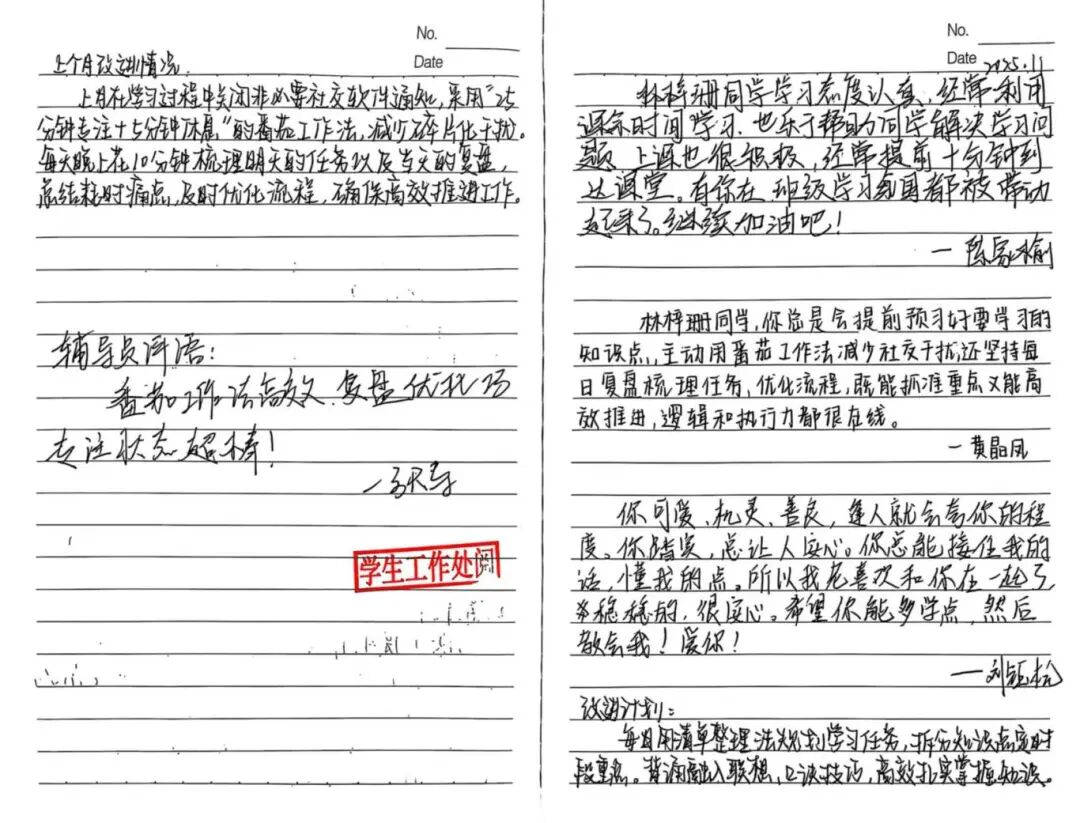 No.
Date
上个月改进情况
上月在学习过程中关闭非必要社交软件通知,采用"25
分钟专注+5分钟休息"的番茄工作法,减少碎片化干扰。
每天晚上花10分钟梳理明天的任务以及当天的复盘,
总结耗时痛点,及时优化流程,确保高效推进工作。
辅导员评语:
番茄工作法高效、复盘优化巧
专注状态超棒!
学生工作处阅
No.
Date 2025.11
林梓珊同学学习态度认真、经常利用
课余时间学习、也乐于帮助同学解决学习问
题、上课也很积极,经常提前十分钟到
达课堂。有你在班级学习氛围都被带动
起来了。继续加油吧!
—陈家榆
林梓珊同学,你总是会提前预习好要学习的
知识点,主动用番茄工作法减少社交干扰,还坚持每
日复盘梳理任务,优化流程,既能抓准重点又能高
效推进,逻辑和执行力都很在线。
—黄晶凤
你可爱、机灵、善良,逢人就会夸你的程
度。你踏实,总让人安心。你总能接住我的
话,懂我的点。所以我老喜欢和你在一起了
稳稳的,很安心。希望你能多学点,然后
教会我!爱你!
—刘钰
改进计划:
每日用清单整理法规划学习任务,拆分知识点定时
段重点。背诵融入联想,口诀技巧,高效扎实掌握知识。